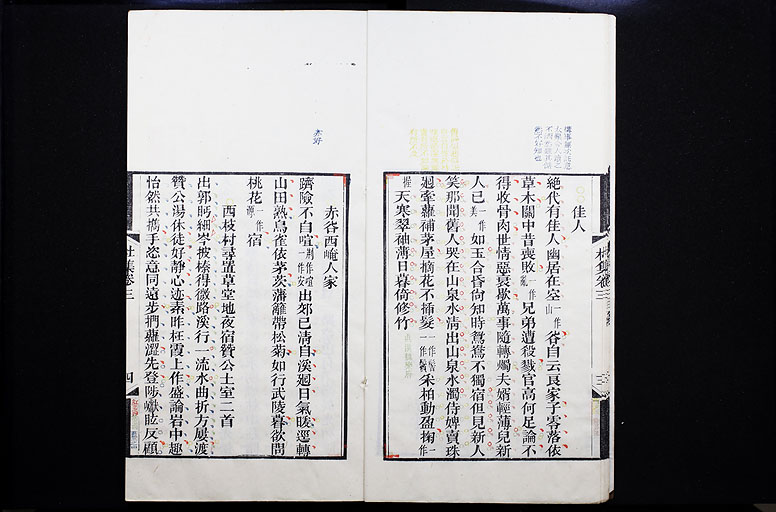 佳人
絶代有佳人幽居在空一作山谷自云良家子零落依
草木關中昔喪敗一作亂兄弟遭殺戮官高何足論不
得收骨肉世情惡衰歇萬事隨轉燭夫婿輕薄兒新
人已一作美如玉合昏尚知時鴛鴦不獨宿但見新人
笑那聞舊人哭在山泉水清出山泉水濁侍婢賣珠
迴牽蘿補茅屋摘花不插髮一作采柏動盈掬一作
握天寒翠袖薄日暮倚修竹
杜集卷三
赤谷西崦人家
躋險不自喧一作安出郊已清自溪迴日氣暖逕轉
山田熟鳥雀依茅茨藩籬帶松菊如行武陵暮欲問
桃花一作源宿
西枝村尋置草堂地夜宿贊公土室二首
出郭眄細岑披榛得微路溪行一流水曲折方屢渡
贊公湯休徒好靜心迹素昨枉霞上作盛論岩中趣
怡然共攜手恣意同遠步捫蘿澀先登陟巘眩反顧
杜集卷三
四